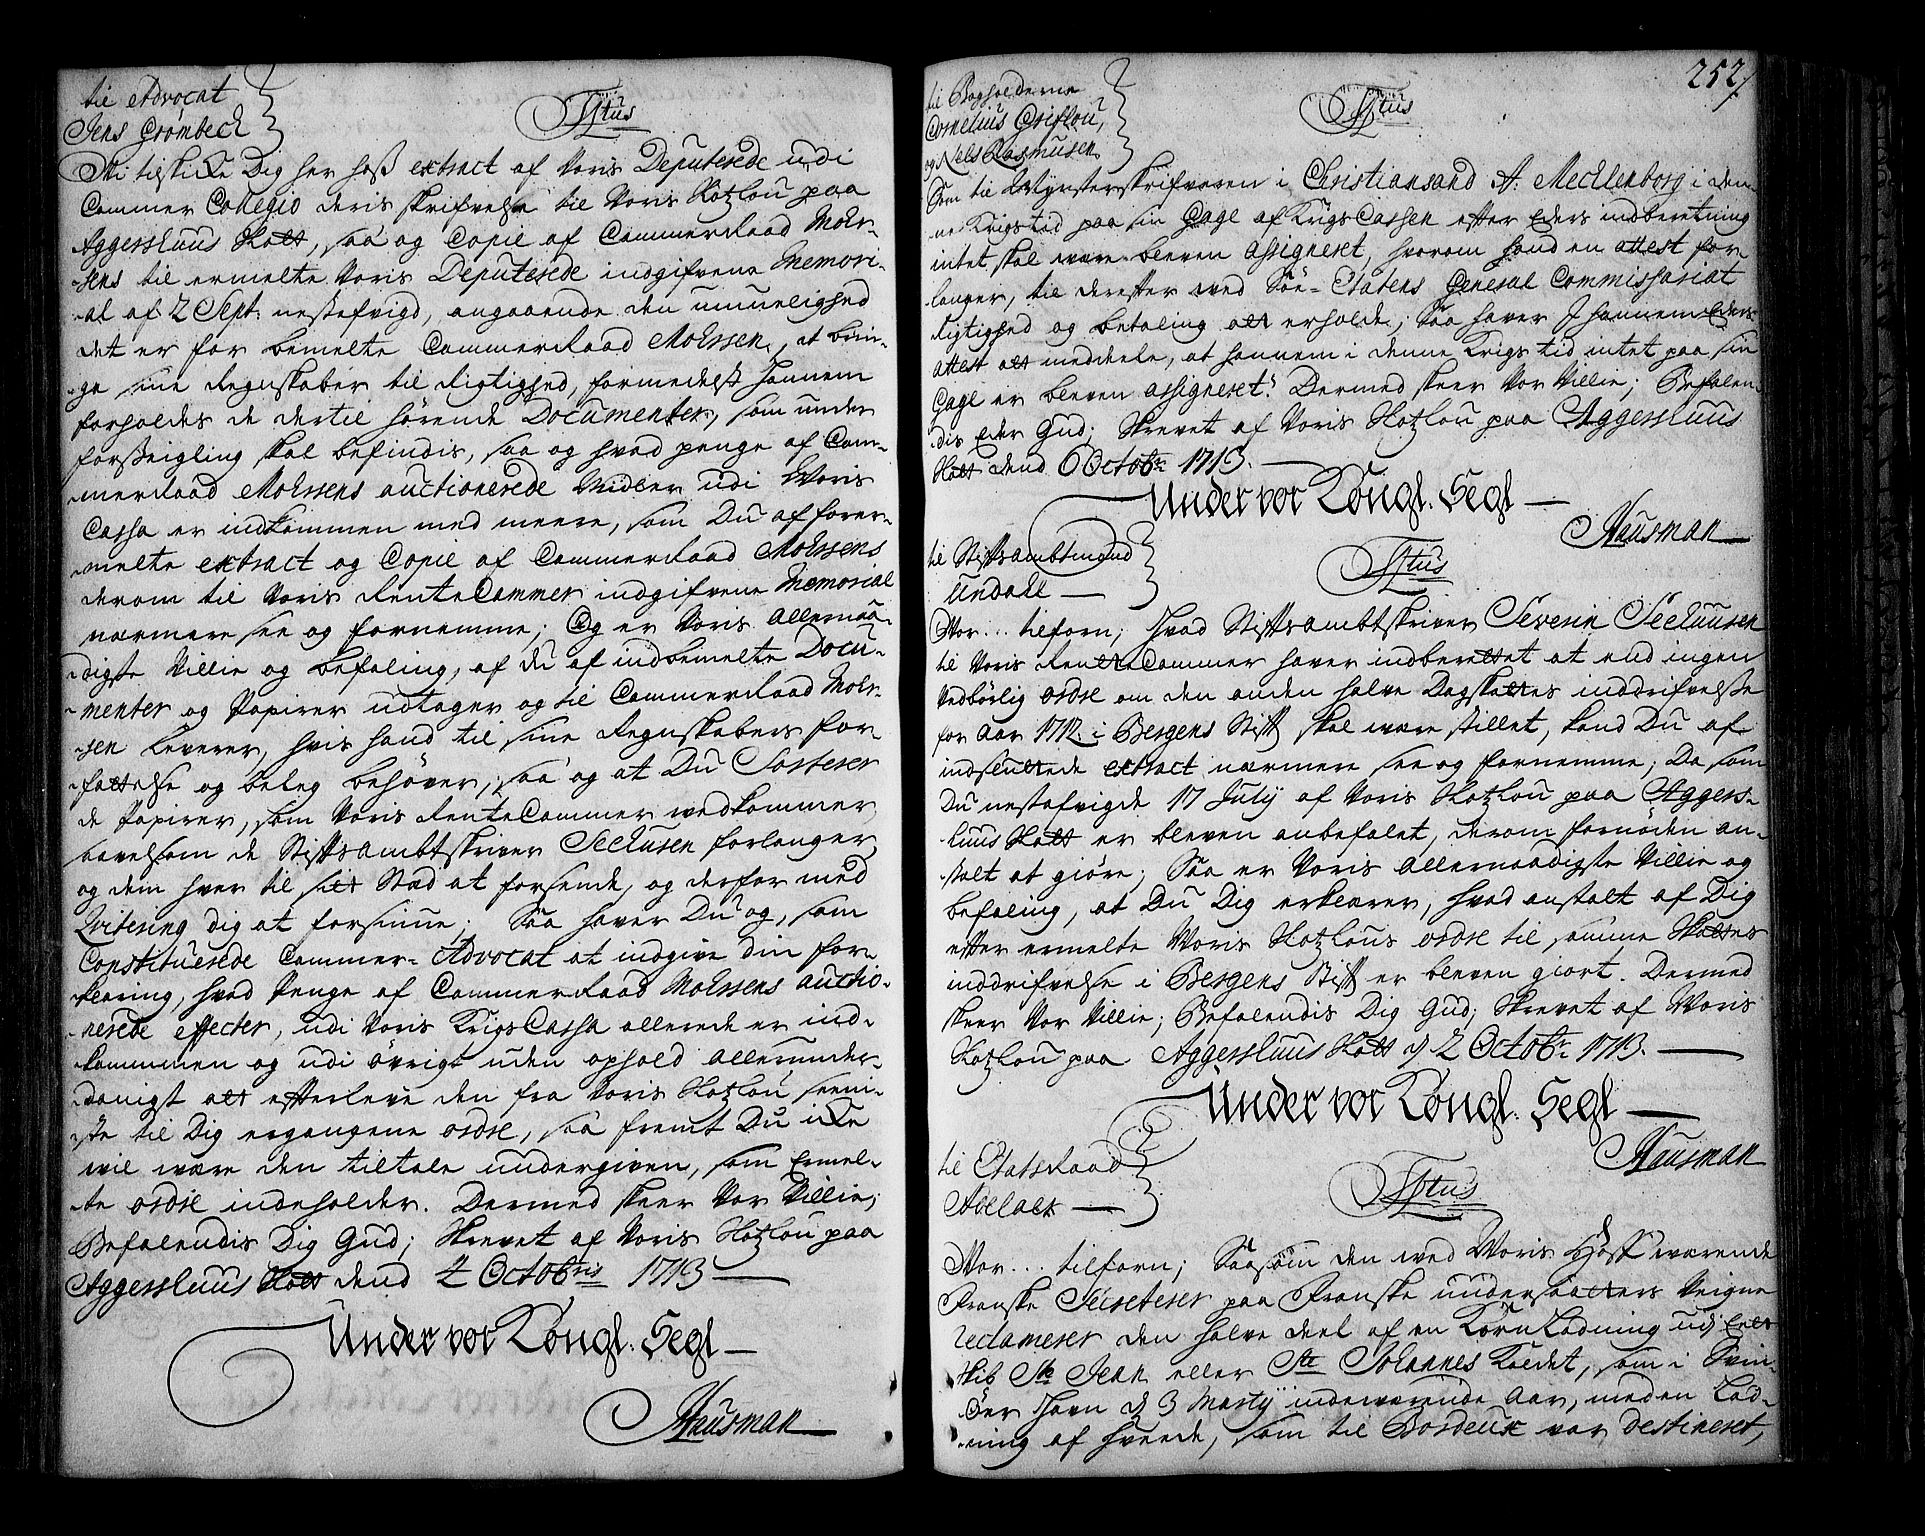 til Advocat
Jens Grombech
Tÿtus
Wi tilskicke Dig her hoß extract af Voris Deputerede udi
Cammer Collegio deris skrifvelse til Voris Slotzlou paa
Aggershuus Slott, saa og Copie af Cammerraad Moer-
sens til ermelte Voris Deputerede indgifvene Memori-
al af 2 Sept: nestafvigd, angaaende den umuelighed
det er for bemelte Cammerraad Moessen, at brin-
ge sine Regnskaber til Rigtighed, formedelst hannem
forholdes de dertil hørende Documenter, som under
forseigling skal befindis, saa og hvad penge af Cam-
merraad Moessens auctionerede Midler udi Voris
Cassa er indkommen med meere, som Du af forer-
melte extract og Copie af Cammerraad Moessens
derom til Voris RenteCammer indgifvene Memorial
nærmere see og fornemme; Og er Voris allernaa-
digste Villie og befaling, at du af indbemelte Docu-
menter og Papirer udtager og til Cammerraad Moer-
sen leverer, hvis hand til sine Regnskabers for-
fattelse og beleg behøver, saa og at Du Sorterer
de Papirer, som Voris RenteCammer vedkommer,
saavelsom de Stiftsambtskriver Seehusen forlanger,
og dem hver til sit Stæd at forsende, og derfor med
Qvitering dig at forsiune; Saa haver Du og, som
Constituerede Cammer-Advocat at indgive din for-
klaring, hvad Penge af Cammerraad Moessens auctio-
nerede effecter, udi Voris KrigsCassa allerede er ind-
kommen og udi øvrigt uden ophold allerunder-
danigst at efterleve den fra Voris Slotzlou seeni-
ste til Dig ergangene ordre, saa fremt Du icke
vil være den tiltale undergiven, som Ermel-
te ordre indeholder. Dermed skeer Vor Villie;
Befalendis Dig Gud; Skrevet af Voris Slotzlou paa
Aggershuus Slott dend 2 Octobris 1713
Under vor Kongl. Segl
Hausman
252
til Bogholderne
Cornelius Griflou,
og Nels Rasmusen
Tÿtus
Som til Mynsterskrifveren i Christiansand A: Mecklenborg i den-
ne Krigstid paa sin Gage af KrigsCassen efter Eders indberetning
intet skal være bleven assigneret, hvorom hand en attest for-
langer, til derefter ved Søe-Etatens General Commissariat
Rigtighed og betaling at erholde; Saa haver I hannem Eders
attest at meddeele, at hannem i denne Krigs tid intet paa sin
Gage er bleven assigneret. Dermed skeer Vor Villie; Befalen-
dis Eder Gud; Skrevet af Voris Slotzlou paa Aggershuus
Slott dend 6 Octobr 1713.
Under vor Kongl. Segl
Hausman
til Stiftsambtmand
Undall
Tÿtus
Vor... tilforn; Hvad Stiftsambtskriver Severin Seehuusen
til Voris RentteCammer haver indberettet at end ingen
Vedbørlig ordre om den anden halve Dagskattes inddrifvelse
for Aar 1712. i Bergens Stift skal være stillet, kand Du af
indsluttede extract nærmere see og fornemme; Da som
Du nestafvigde 17 July af Voris Slotzlou paa Aggers-
huus Slott er bleven anbefalet, derom fornøden an-
stalt at giøre; Saa er Voris allernaadigste Villie og
befaling, at Du Dig erklærer, hvad anstalt af Dig
efter ermelte Voris Slotzlous ordre til samme Skattes
inddrifvelse i Bergens Stift er bleven giort. Dermed
skeer Vor Villie; Befalendis Dig Gud; Skrevet af Voris
Slotzlou paa Aggershuus Slott d 2 Octobr 1713.
Under vor Kongl. Segl
Hausman
til Etatsraad
Adelaer
Tÿtus
Vor... tilforn; Saasom den ved Voris Hoff værende
Franske Secreterer paa Franske undersaatters Veigne
reclamerer den halve deel af en Korn Ladning udj Ett
skib St Jean eller Ste Johannes kaldet, som i Svin-
øer Havn d 3 Marty indeværende Aar, med en Lad-
ning af hvede, som til Bordeux var destineret,